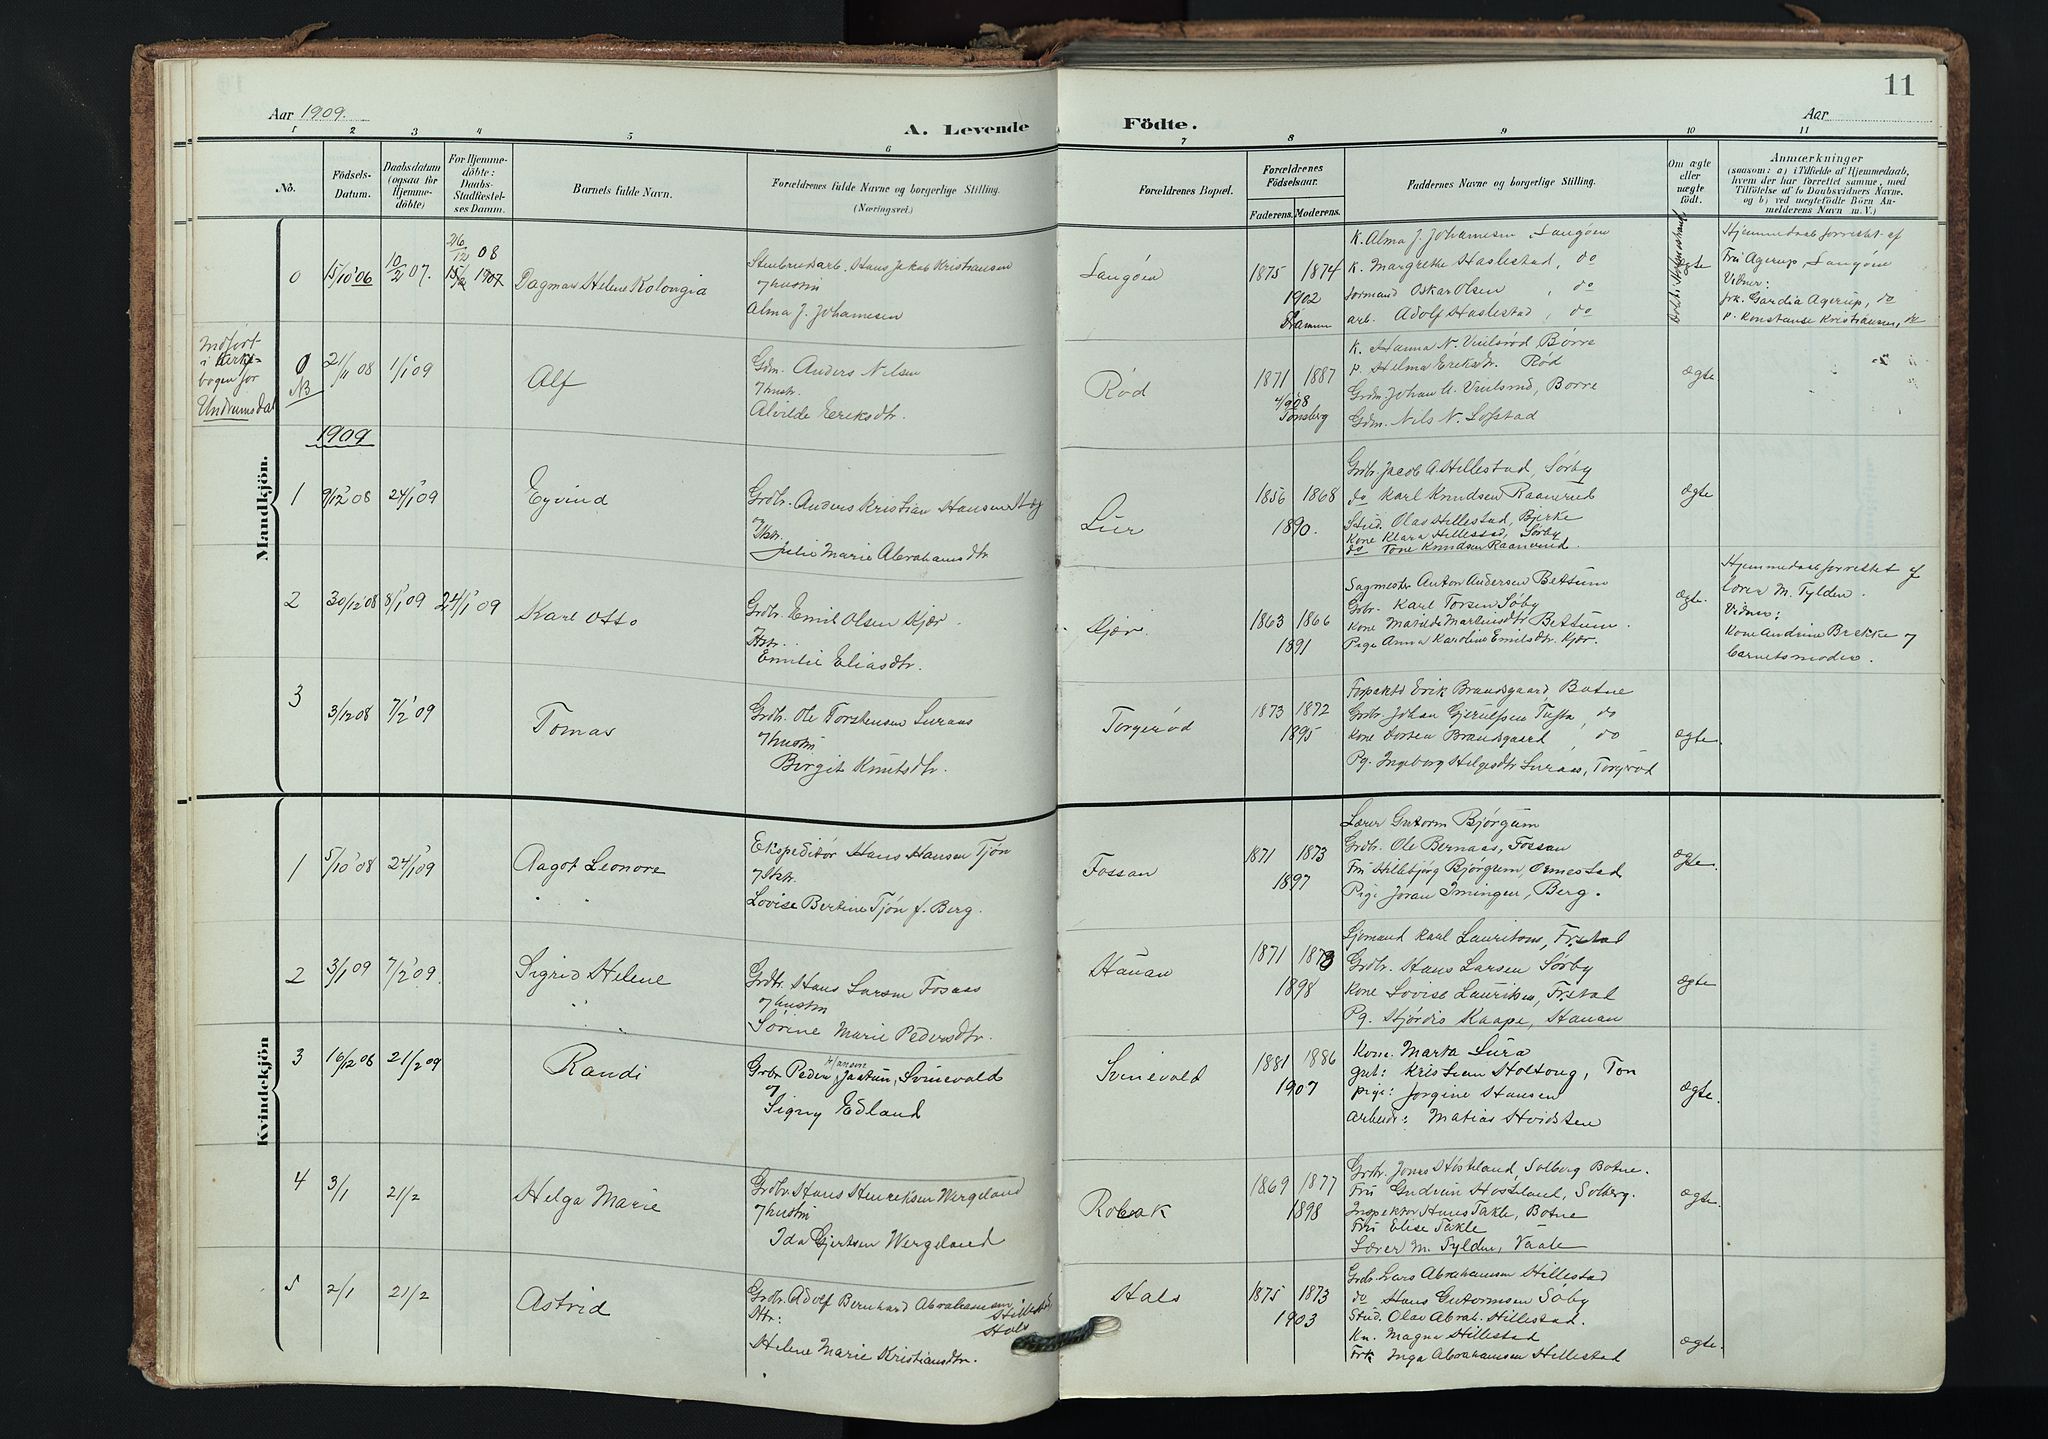 11
Aar 1909.
A. Levende
Födte.
Aar
1
2
3
4
5
6
7
8
9
10
11
No.
Födsels-
Datum.
Daabsdatum
(ogsaa för
Hjemme-
döbte)
For Hjemme-
döbte:
Daabs-
Stadfæstel-
ses Datum.
Barnets fulde Navn.
Forældrenes fulde Navne og borgerlige Stilling.
(Næringsvei.)
Forældrenes Bopæl.
Forældrenes
Födselsaar.
Faderens.
Moderens.
Faddernes Navne og borgerlige Stilling.
Om ægte
eller
uægte
födt.
Anmærkninger
(saasom: a) i Tilfælde af Hjemmedaab,
hvem der har forrettet samme, med
Tilföielse af to Daabsvidners Navne.
og b) ved uægtefödte Börn An-
melderens Navn m. V.)
Mandkjön.
0
15/10 06
10/2 07.
26/12 08
15/2 1907
Dagmar Helene Kolongia
Stenbrudsarb. Hans Jakob Kristiansen
og hustru
Alma J. Johannesen
Langøen
1875 1874
1902
Drammen
K. Alma J. Johannesen Langøen
K. Margrethe Haslestad, do
Formand Oskar Olsen, do
arb. Adolf Haslestad, do
ægte
Hjemmedaab forrettet af
Fru Agerup, Langöen
Vidner:
frk. Gardia Agerup, do
p. Konstanse Kristiansen, do
Indført
i kirke-
bogen for
Undrumsdal
0
NB
21/11 08
1/1 09
Alf
Gdm. Anders Nilsen
og hustr.
Alvilde Eriksdtr.
Rød
1871 1887
4/9 08
Tønsberg
K. Hanna N. Viulsrød, Børre
p. Helma Eriksdtr. Rød
Grdm. Johan A. Viulsrud, Borre
Gdm. Nils N. Lofstad
ægte
1909
1
9/12 08
24/1 09
Eyvind
Grdbr. Anders Kristian Hansen
og
Hstr.
Julie Marie Abrahamsdtr
Lur
1856 1868
1890.
Grdbr. Jacob A. Hillestad, Sørby
do Karl Knudsen Raanerud
Stud. Olas Hillestad, Bjerke
Kone Klara Hillestad, Sørby
do Tone Knudsen Raanerud.
ægte
2
30/12 08
8/1 09
24/1 09
Karl Otto
Grdbr. Emil Olsen Kjær.
og
Hstr.
Emilie Eliasdtr.
Kjær.
1863 1866
1891
Sagmestr Anton Andersen Bettum
Grbr. Karl Torsen Søby
Kone Matilde Martinisdtr Bettum.
Pige Anna Karoline Emilsdtr. Kjær.
ægte.
Hjemmedaab forrettet af
lærer M. Tylden.
Vidner:
Kone Andrine Brekke og
barnets moder.
3
3/12 08
7/2 09
Tomas
Grdbr. Ole Torstensen Luraas
og hustru
Birgit Knutsdtr.
Torgerød
1873 1872
1895
Forpakter Erik Brandsgaard, Botne
Grdbr. Johan Gjerulfsen Tufta, do
Kone Dortea Brandsgaard, do
Pg. Ingeborg Helgesdtr Luraas, Torgrød
ægte.
Kvindekjön
1
5/10 08
24/1 09
Aagot Leonore
Ekspeditør Hans Hansen Tjøn
og Hstr.
Lovise Bertine Tjøn f. Berg.
Fossan
1871 1873
1897
Lærer Gutorm Bjørgum
Grdbr. Ole Bernaas, Fossan
Fru Hillebjørg Bjørgum, Ormestad
Pige Joran Imingen, Berg.
ægte.
2
3/1 09
7/2 09.
Sigrid Helene
Grdbr. Hans Larsen Fosaas
og hustru
Sørine Marie Pedersdtr.
Hanan
1871 1873
1898
Sjømand Karl Lauritsen, Frstad
Grdbr. Hans Larsen Sørby
Kone Lovise Lauritsen, Frstad
Pg. Hjørdis Kaape, Hanan
ægte
3
16/12 08
21/2 09
Randi
Grbr. Peder Hansen Jaatun, Svinevold
og
Signy Edland
Svinevold
1881 1886
1907
Kone. Marta Lura
gut: Kristian Holtong, Ton
pige: Jørgine Hansen
Arbeidr: Matias Hvidsten
ægte.
4
3/1
21/2
Helga Marie
Grdbr. Hans Henriksen Wergeland
og hustru
Ida Gjertsen Wergeland
Robak
1869 1877
1898
Grdbr. Jons Høstland, Solberg Botne.
Fru Gudrun Hostland, Solberg.
Inspektor Hans Takle, Botne
Fru Elise Takle
Lærer M. Tylden, Vaale
ægte.
5
2/1
21/2
Astrid
Grdbr. Adolf Bernhard Abrahamsen
Hillestad
Hals
Htr:
Helene Marie Kristiansdtr.
Hals
1875 1873
1903
Grdb. Lars Abrahamsen Hillestad
do Hans Gutormsen Søby
Stud. Olav Abrah. Hillestad.
Kn. Magna Hillestad
Frk Inga Abrahamsen Hillestad
ægte.